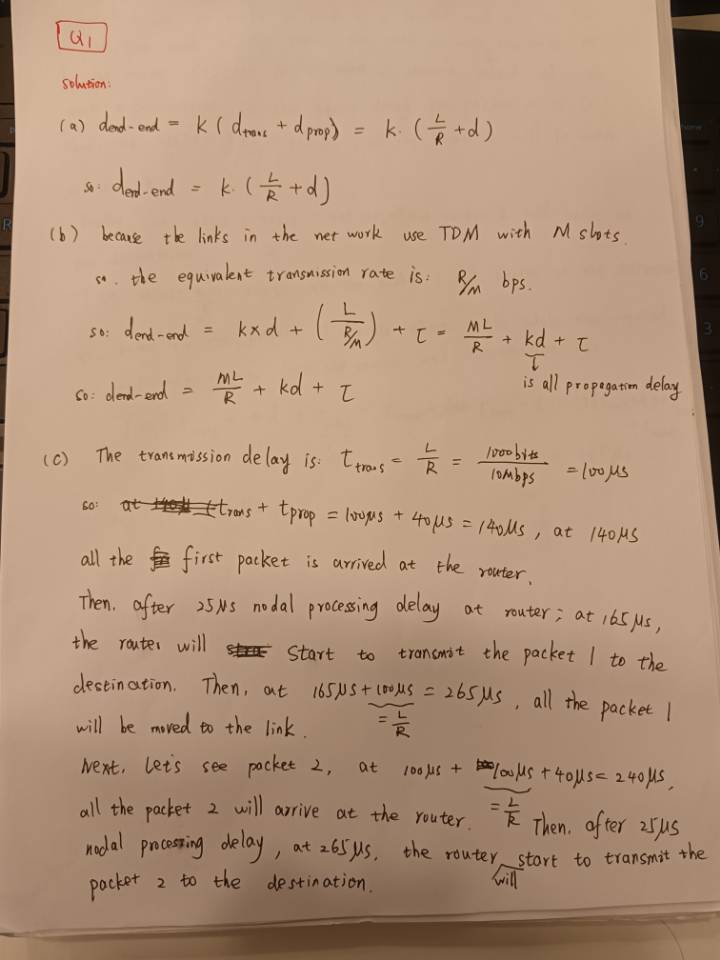 Q1
Solution:
(a) dend-end = k (dtrans + dprop) = k. (L/R + d)
so: dend-end = k. (L/R + d)
(b) because the links in the net work use TDM with M slots.
so. the equivalent transmission rate is: R/M bps.
so: dend-end = k×d + (L/(R/M)) + τ = ML/R + kd + τ
is all propagation delay
so: dend-end = ML/R + kd + τ
(c) The transmission delay is: ttrans = L/R = 1000bits/10Mbps = 100μs
so: ttrans + tprop = 100μs + 40μs = 140μs, at 140μs
all the first packet is arrived at the router.
Then. after 25μs nodal processing delay at router; at 165μs,
the router will start to transmit the packet 1 to the
destination. Then, at 165μs + 100μs = 265μs, all the packet 1
= L/R
will be moved to the link.
Next. let's see packet 2, at 100μs + 100μs + 40μs = 240μs,
= L/R
all the packet 2 will arrive at the router. Then. after 25μs
nodal processing delay, at 265μs. the router will start to transmit the
packet 2 to the destination.